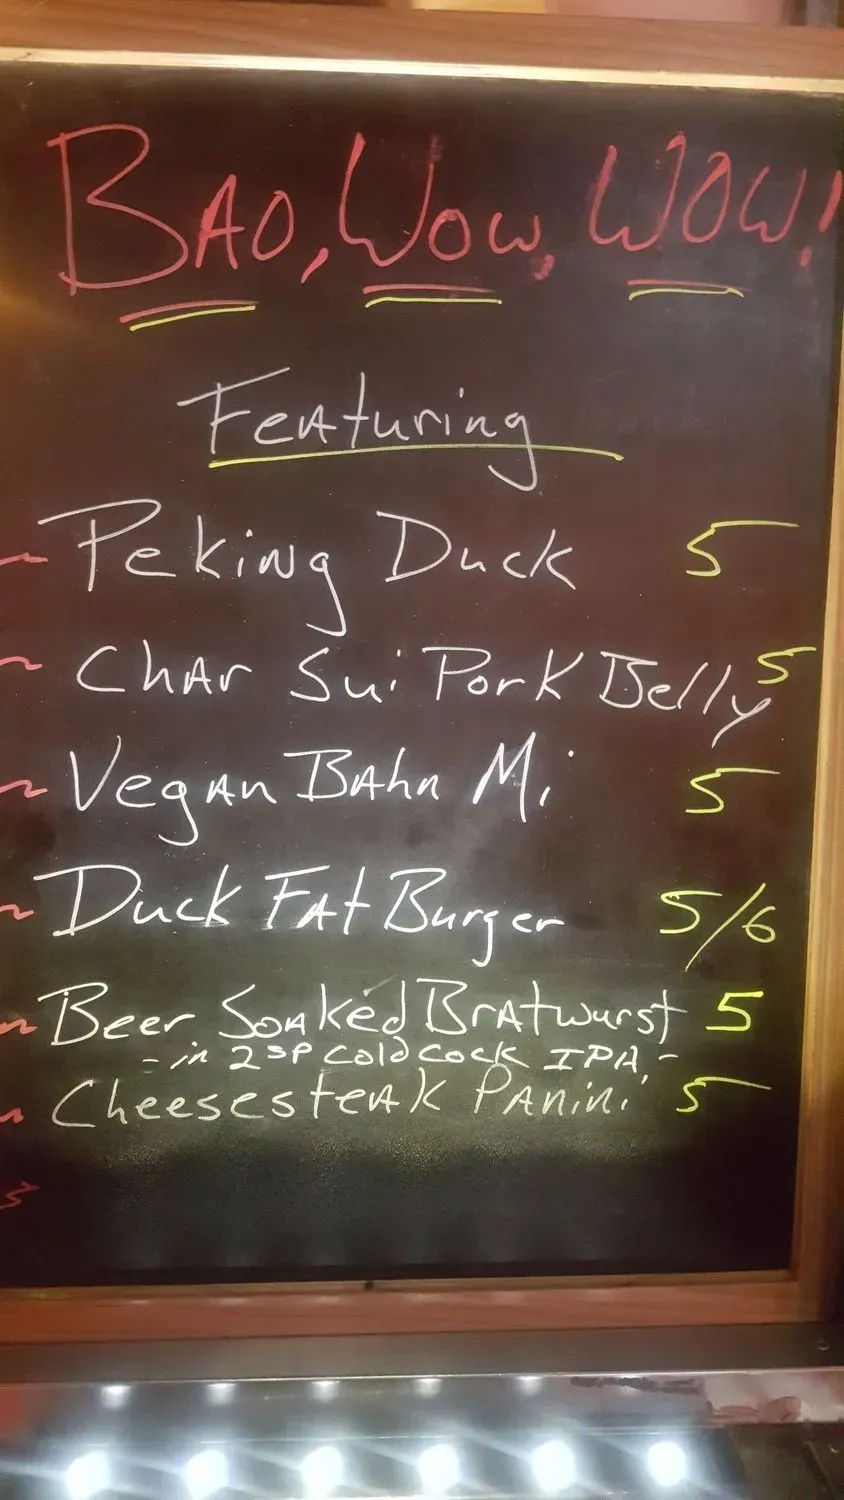 BAO, WOW, WOW!
FeATuring
Peking Duck 5
ChAr Sui Pork Belly 5
VegAn BAhn Mi 5
Duck FAt Burger 5/6
Beer SoAked BrAtwurst 5
- in 2SP Cold Cock IPA, -
CheesesteAk PAnini 5